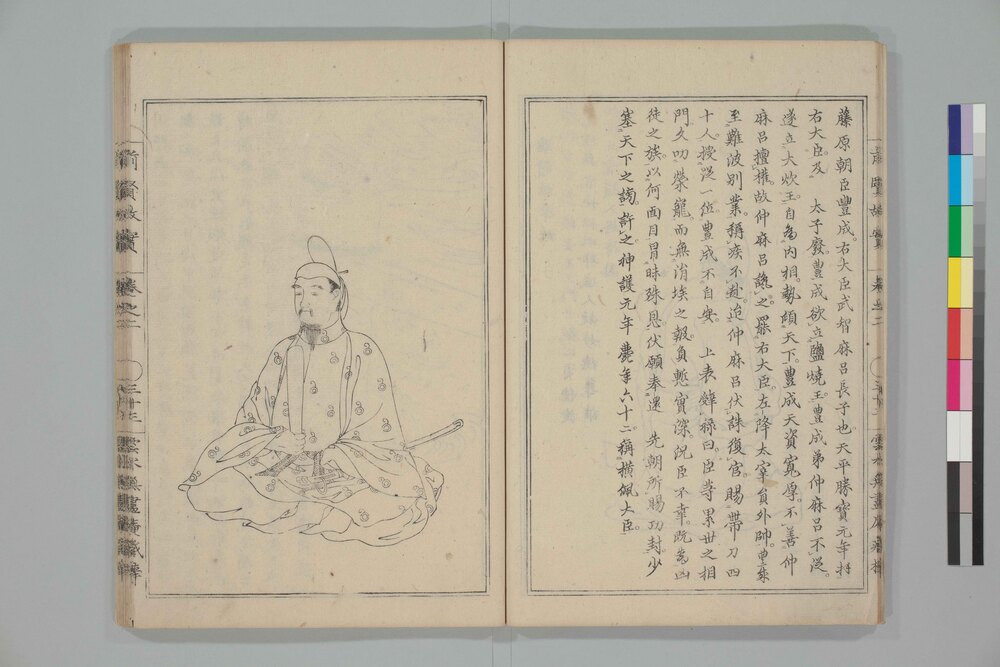 藤原朝臣豐成。右大臣武智麻呂長子也。天平勝寶元年拜
右大臣。及　太子廢。豐成欲立鹽燒王。豐成弟仲麻呂不從
遂立大炊王。自為內相。勢傾天下。豐成天資寬厚。不善仲
麻呂擅權。故仲麻呂讒之。罷右大臣。左降太宰員外帥。豐成
至難波別業。稱疾不赴。迨仲麻呂伏誅復官。賜帶刀四
十人。授從一位。豐成不自安。上表辭祿曰。臣等累世之相
門。久叨榮寵。而無涓埃之報。負慙實深。況臣不幸。既為凶
徒之族。以何面目冒昧殊恩。伏願奉還　先朝所賜功封。少
塞天下之謗。許之。神護元年薨。年六十二。稱橫佩大臣。
前賢故實
卷之二